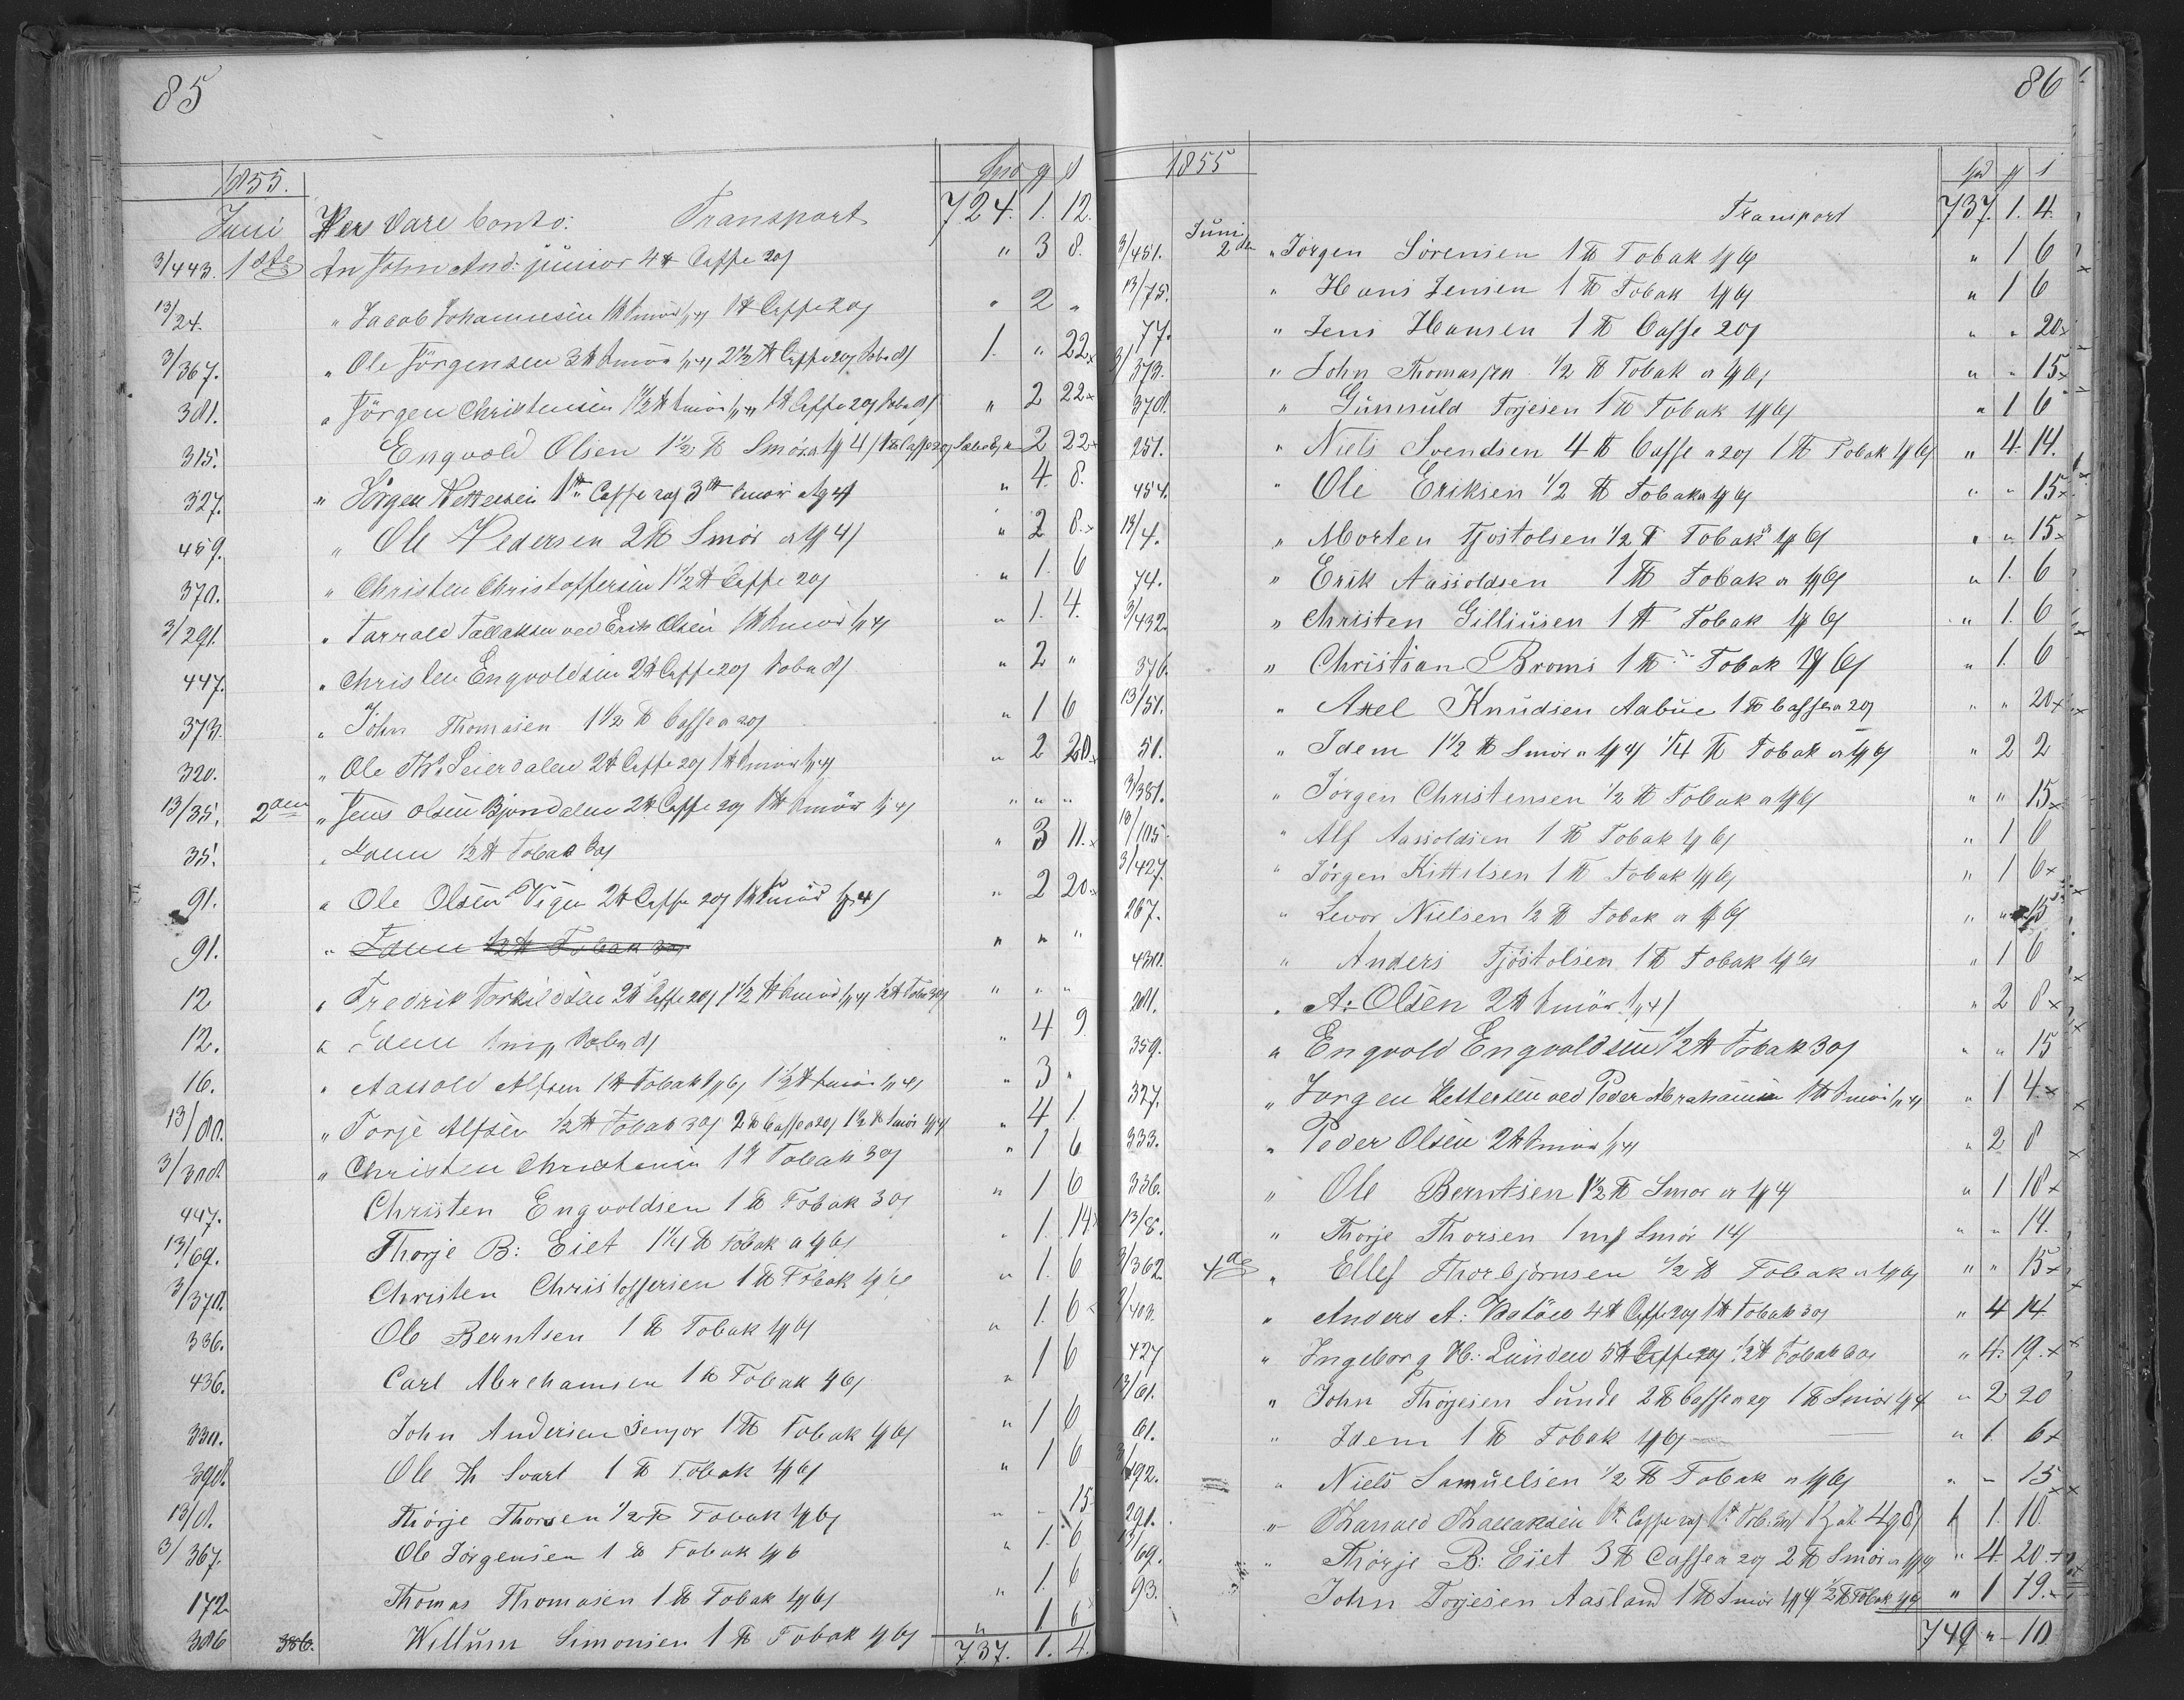 85
1855. Spd ƒ s
Juni Per Vare Conto: Transport 724. 1. 12.
3/443. 1ste An John And: junior 4 ℔ Caffe 20s " 3 8.
13/24. " Jacob Johannesen 1 ℔ Smör 1ƒ 4s 1 ℔ Caffe 20s " 2 "
3/367. " Ole Jörgensen 3 ℔ Smör 1ƒ 4s 2 1/2 ℔ Caffe 20s 1. " 22 x
381. " Jörgen Christensen 1 1/2 ℔ Smör 1ƒ 4s 1 ℔ Caffe 20s " 2 22 x
315. Engvold Olsen 1 1/2 ℔ Smör a 1ƒ 4s 1 ℔ Caffe 20s " 2 22 x
327. " Jörgen Nettersen 1 ℔ Caffe 20s 3 ℔ Smör a 1ƒ 4s " 4 8.
459. " Ole Pedersen 2 ℔ Smör a 1ƒ 4s " 2 8. x
370. " Christen Christoffersen 1 1/2 ℔ Caffe 20s " 1. 6
3/291. " Tarrald Tallaksen ved Erik Olsen 1 ℔ Smör 1ƒ 4s " 1. 4.
447. " Christen Engvoldsen 2 ℔ Caffe 20s " 2 "
373. " John Thomasen 1 1/2 ℔ Caffe a 20s " 1 6
320. " Ole Ths Leierdalen 2 ℔ Caffe 20s 1 ℔ Smör 1ƒ 4s " 2 20. x
13/35. 2den " Jens Olsen Bjondalen 2 ℔ Caffe 20s 1 ℔ Smör 1ƒ 4s " " "
35. " Idem 1/2 ℔ Tobak 30s " 3 11. x
91. " Ole Olsen Vigen 2 ℔ Caffe 20s 1 ℔ Smör 1ƒ 4s " 2 20. x
91. " Idem 1/2 ℔ Tobak 30s " " "
12 " Fredrik Torkildsen 2 ℔ Caffe 20s 1 1/2 ℔ Smör 1ƒ 4s 1/2 ℔ Tobak 30s " " "
12. " Idem " 4 9
16. " Aassold Alfsen 1 ℔ Tobak 1ƒ 6s 1 1/2 ℔ Smör 1ƒ 4s " 3 "
13/80. " Torje Alfsen 1/2 ℔ Tobak 30s 2 ℔ Caffe a 20s 1 1/2 ℔ Smör 1ƒ 4s " 4 1
3/308. " Christen Christensen 1 ℔ Tobak 30s " 1 6
447. Christen Engvoldsen 1 ℔ Tobak 30s " 1 6
13/69. Thorje B: Eiet 1 1/4 ℔ Tobak a 1ƒ 6s " 1. 14 x
3/370. Christen Christoffersen 1 ℔ Tobak 1ƒ 6s " 1. 6
336. Ole Berntsen 1 ℔ Tobak 1ƒ 6s " 1. 6
436. Carl Abrehamsen 1 ℔ Tobak 1ƒ 6s " 1 6
330. John Andersen Senjor 1 ℔ Tobak 1ƒ 6s " 1 6
398. Ole Th Svart 1 ℔ Tobak 1ƒ 6s " 1 6
13/8. Thörje Thorsen 1/2 ℔ Tobak 1ƒ 6s " " 15
3/367. Ole Jörgensen 1 ℔ Tobak 1ƒ 6 " 1. 6
172 Thomas Thomasen 1 ℔ Tobak 1ƒ 6s " 1. 6
386 386. Willum Simonsen 1 ℔ Tobak 1ƒ 6s " 1 6
737. 1. 4.
86
1855 Spd ƒ s
Transport 737. 1. 4.
3/451. Juni 2den " Jörgen Sörensen 1 ℔ Tobak 1ƒ 6s " 1 6
13/75. " Hans Jensen 1 ℔ Tobak 1ƒ 6s " 1 6
77. " Jens Hansen 1 ℔ Caffe 20s " " 20 x
3/373. " John Thomassen 1/2 ℔ Tobak a 1ƒ 6s " " 15 x
378. " Gunnuld Torjesen 1 ℔ Tobak 1ƒ 6s " 1 6
251. " Niels Svendsen 4 ℔ Caffe a 20s 1 ℔ Tobak 1ƒ 6s " 4. 14.
454. " Ole Eriksen 1/2 ℔ Tobak a 1ƒ 6s " " 15 x
13/4. " Morten Tjostolsen 1/2 ℔ Tobak a 1ƒ 6s " " 15 x
74. " Erik Aassoldsen 1 ℔ Tobak a 1ƒ 6s " 1. 6
3/432. " Christen Gilliusen 1 ℔ Tobak 1ƒ 6s " 1. 6
376. " Christian Broms 1 ℔ Tobak 1ƒ 6s " 1. 6
13/51. " Axel Knudsen Aabue 1 ℔ Caffe a 20s " " 20 x
51. " Idem 1 1/2 ℔ Smör a 1ƒ 4s 1/4 ℔ Tobak a 1ƒ 6s " 2 2
3/381. " Jörgen Christensen 1/2 ℔ Tobak a 1ƒ 6s " " 15 x
13/105. " Alf Aassoldsen 1 ℔ Tobak 1ƒ 6s " 1 6
3/427. " Jörgen Kittelsen 1 ℔ Tobak 1ƒ 6s " 1 6 x
267. " Levor Nielsen 1/2 ℔ Tobak a 1ƒ 6s " " 15
430. " Anders Tjöstolsen 1 ℔ Tobak 1ƒ 6s " 1 6
281. " A: Olsen 2 ℔ Smör 1ƒ 4s " 2 8 x
359. " Engvold Engvoldsen 1/2 ℔ Tobak 30s " " 15
327. " Jörgen Nettersen ved Peder Abrahamsen 1 ℔ Smör 1ƒ 4s " 1 4. x
333. " Peder Olsen 2 ℔ Smör 1ƒ 4s " 2 8
336. " Ole Berntsen 1 1/2 ℔ Smör a 1ƒ 4s " 1 18 x
13/8. " Thorje Thorsen 1 mp Smör 14s " " 14.
3/362 4de " Ellef Thorbjörnsen 1/2 ℔ Tobak a 1ƒ 6s " " 15 x
3/403. " Anders A: 4 ℔ Caffe 20s 1 ℔ Tobak 30s " 4 14
427 " Ingeborg H: Lunden 5 ℔ Caffe 20s 1/2 ℔ Tobak 30s " 4. 19. x
13/61. " John Thörjesen Sunde 2 ℔ Caffe a 20s 1 ℔ Smör 1ƒ 4 " 2 20
61. " Idem 1 ℔ Tobak 1ƒ 6s " 1 6 x
3/192. " Niels Samuelsen 1/2 ℔ Tobak a 1ƒ 6s " " 15 x
291. " Tharrald Thallaksen 1 ℔ Caffe 20s 1 ℔ Tob: 30s 1 4ƒ 8s 1 1. 10.
13/69. " Thörje B: Eiet 3 ℔ Caffe a 20s 2 ℔ Smör a 1ƒ 4s " 4. 20. x
93. John Torjesen Aasland 1 ℔ Smör 1ƒ 4s 1/2 ℔ Tobak 1ƒ 6s " 1 19.
749 " 10